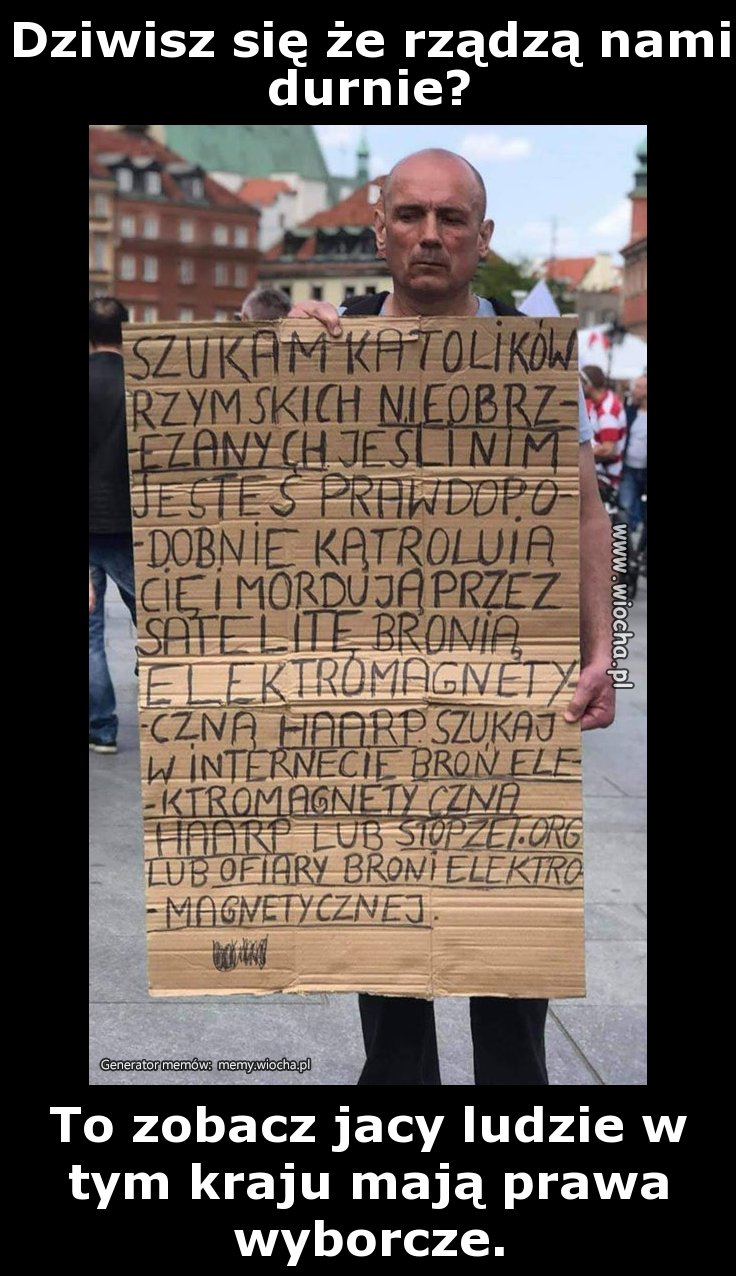 Dziwisz się że rządzą nami
durnie?
SZUKAM KATOLIKÓW
RZYMSKICH NIEOBRZ-
-EZANYCH JEŚLI NIM
JESTEŚ PRAWDOPO-
-DOBNIE KĄTROLUIĄ
CIĘ I MORDUJĄ PRZEZ
SATELITĘ BRONIĄ
ELEKTROMAGNETY-
-CZNĄ HAARP. SZUKAJ
W INTERNECIE BROŃ ELE-
-KTROMAGNETYCZNA
HAARP LUB STOPZET.ORG
LUB OFIARY BRONI ELEKTRO
-MAGNETYCZNEJ.
www.wiocha.pl
Generator memów: memy.wiocha.pl
To zobacz jacy ludzie w
tym kraju mają prawa
wyborcze.